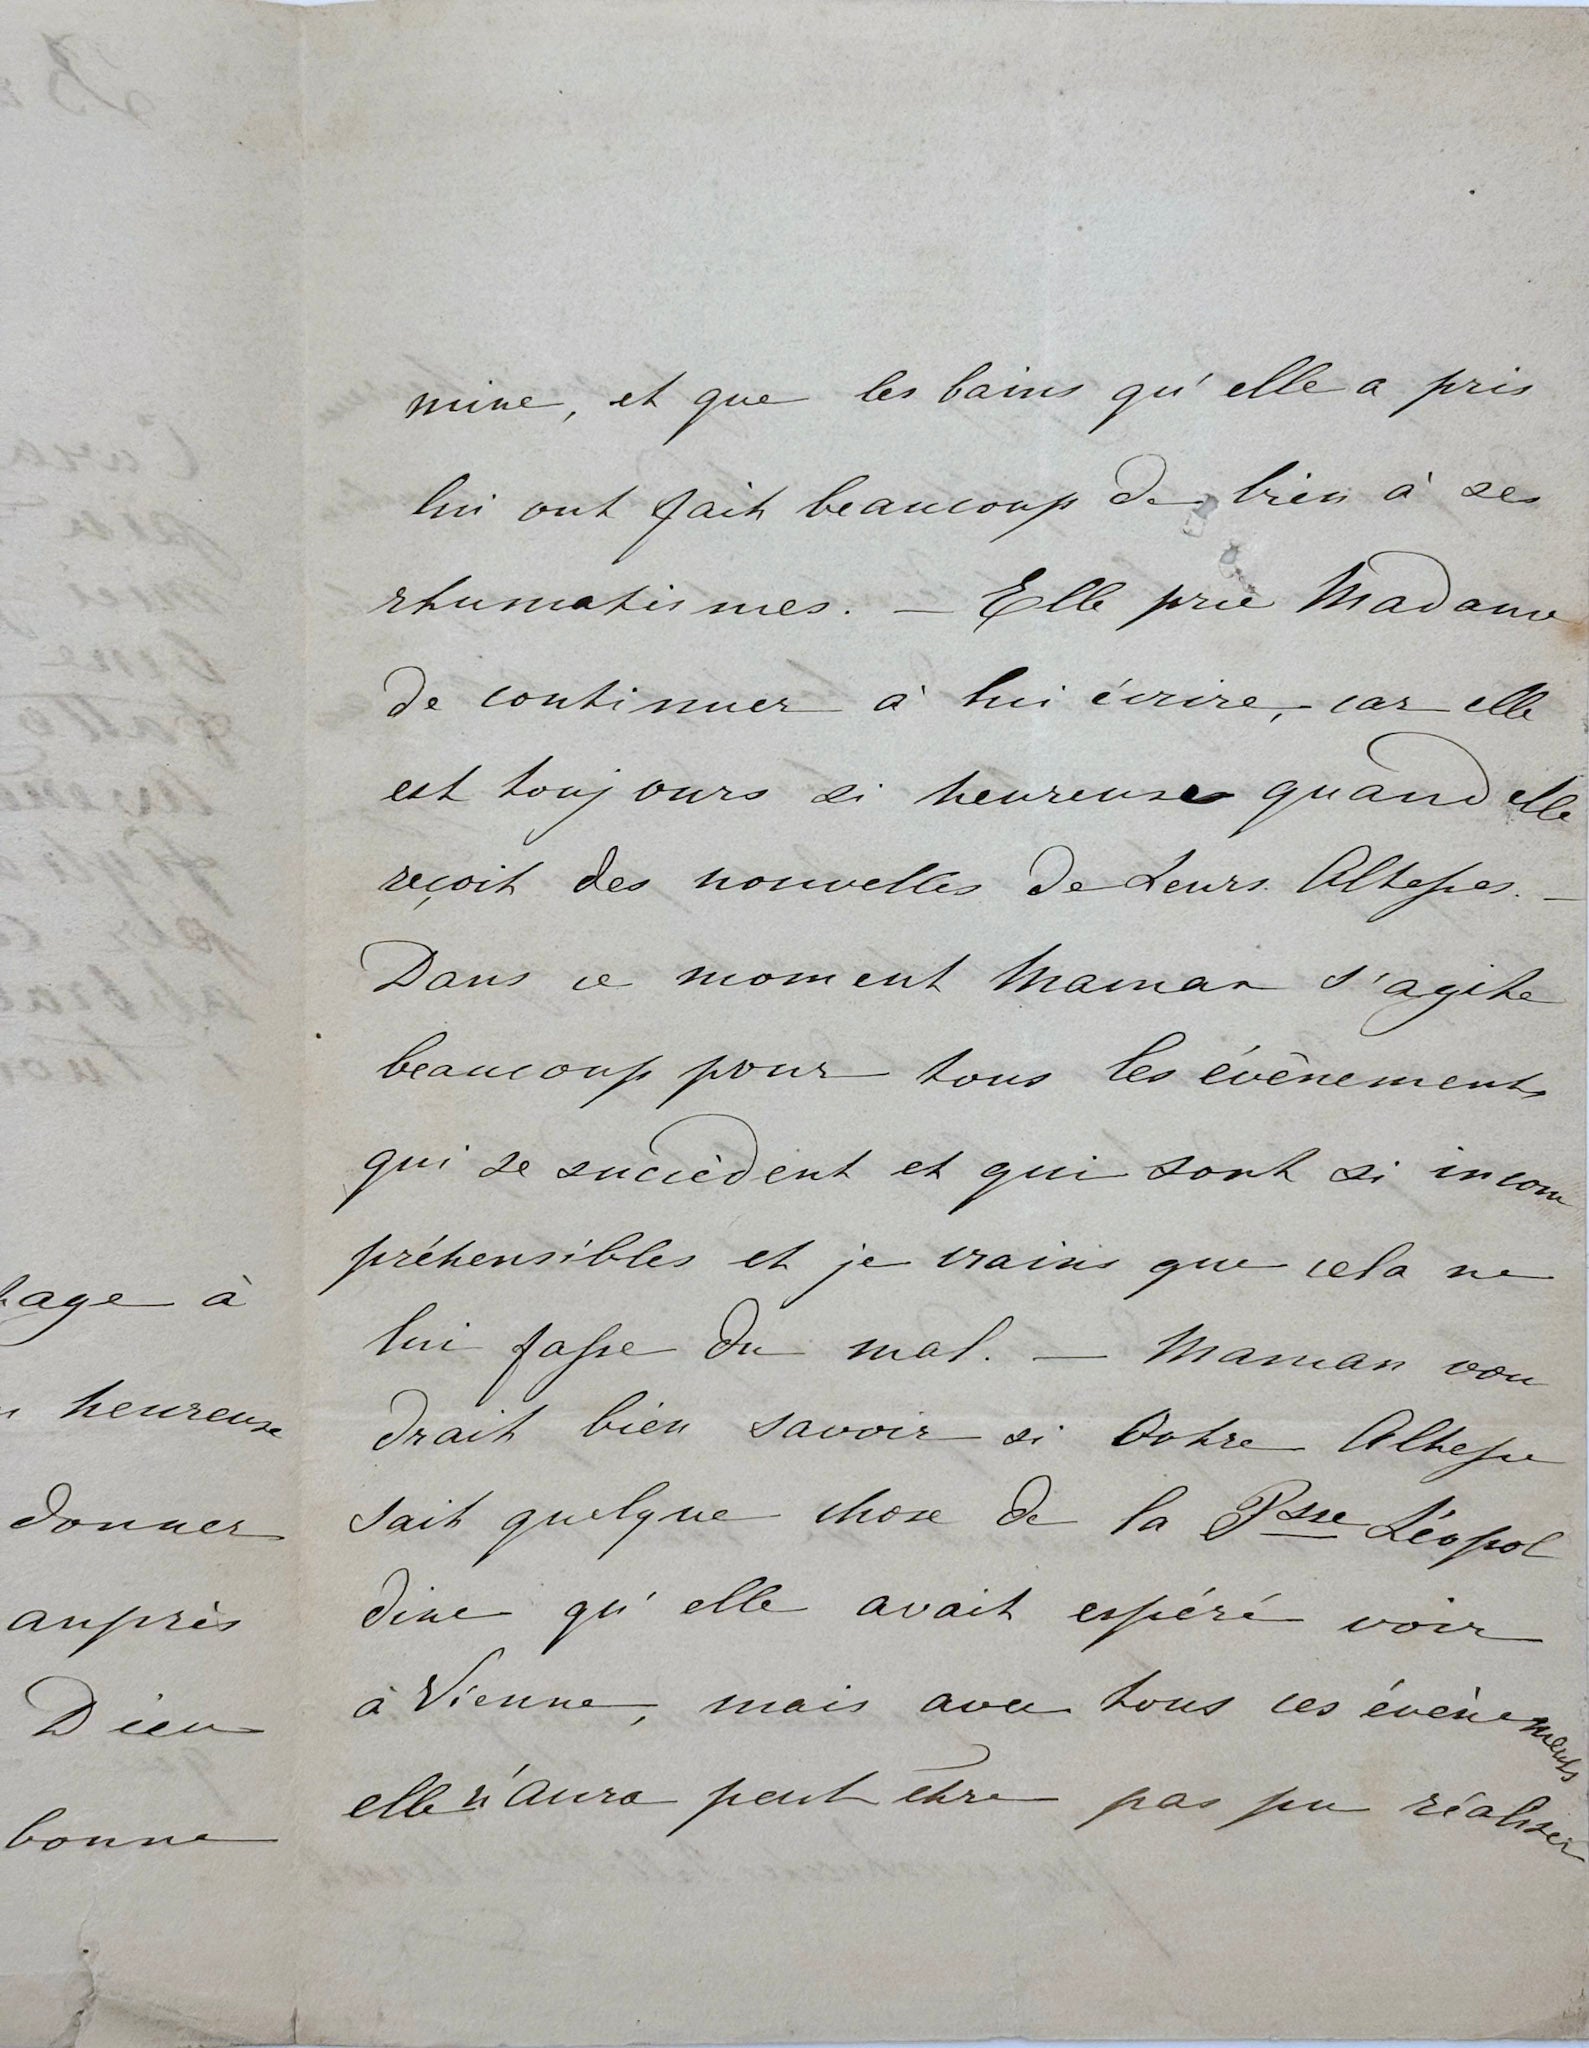 mine, et que les bains qu'elle a pris
lui ont fait beaucoup de bien à ses
rhumatismes. — Elle prie Madame
de continuer à lui écrire, car elle
est toujours si heureuse quand elle
reçoit des nouvelles de Leurs Altesses. —
Dans ce moment Maman s'agite
beaucoup pour tous les évènements
qui se succèdent et qui sont si incom
préhensibles et je crains que cela ne
lui fasse du mal. — Maman vou
drait bien savoir si Votre Altesse
sait quelque chose de la Psse Léopol
dine qu'elle avait espéré voir
à Vienne, mais avec tous ces évènements
elle n'aura peut être pas pu réaliser
age à
heureuse
donner
auprès
Dieu
bonne